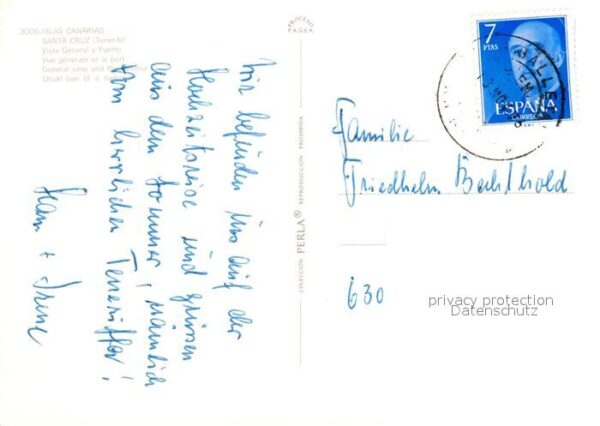 3006 ISLAS CANARIAS
SANTA CRUZ (Tenerife)
Vista General y Puerto
Vue générale et le port
General view and the
Wir befinden uns auf der
Hochzeitsreise und grüssen
aus dem Sommer, nämlich
vom herrlichen Teneriffa!
Hans + Irene
PROCESO
PAGSA
COLECCION PERLA® REPRODUCCION PROHIBIDA
7
PTAS
ESPAÑA
CORREOS
Familie
Friedhelm Bechthold
630
privacy protection
Datenschutz